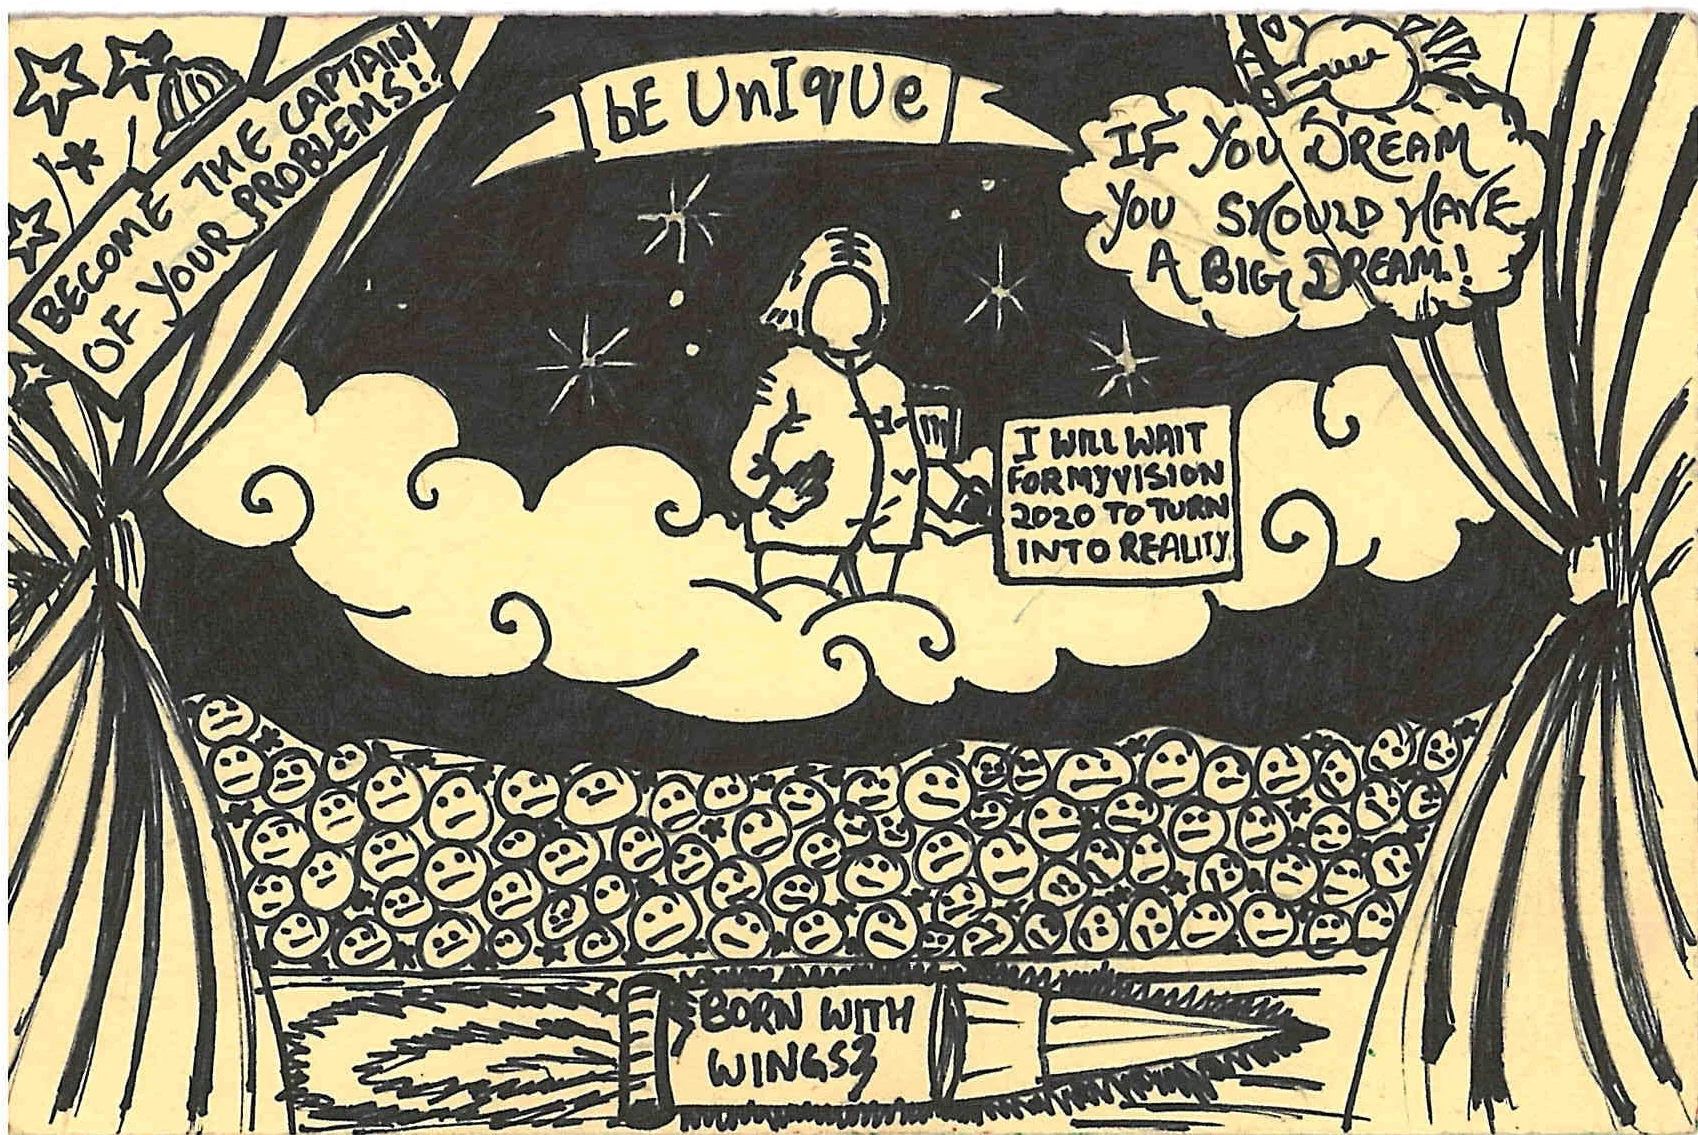 BECOME THE CAPTAIN
OF YOUR PROBLEMS!
bE UnIqUe
IF YOU DREAM
YOU SHOULD HAVE
A BIG DREAM!
I WILL WAIT
FOR MY VISION
2020 TO TURN
INTO REALITY.
BORN WITH
WINGS